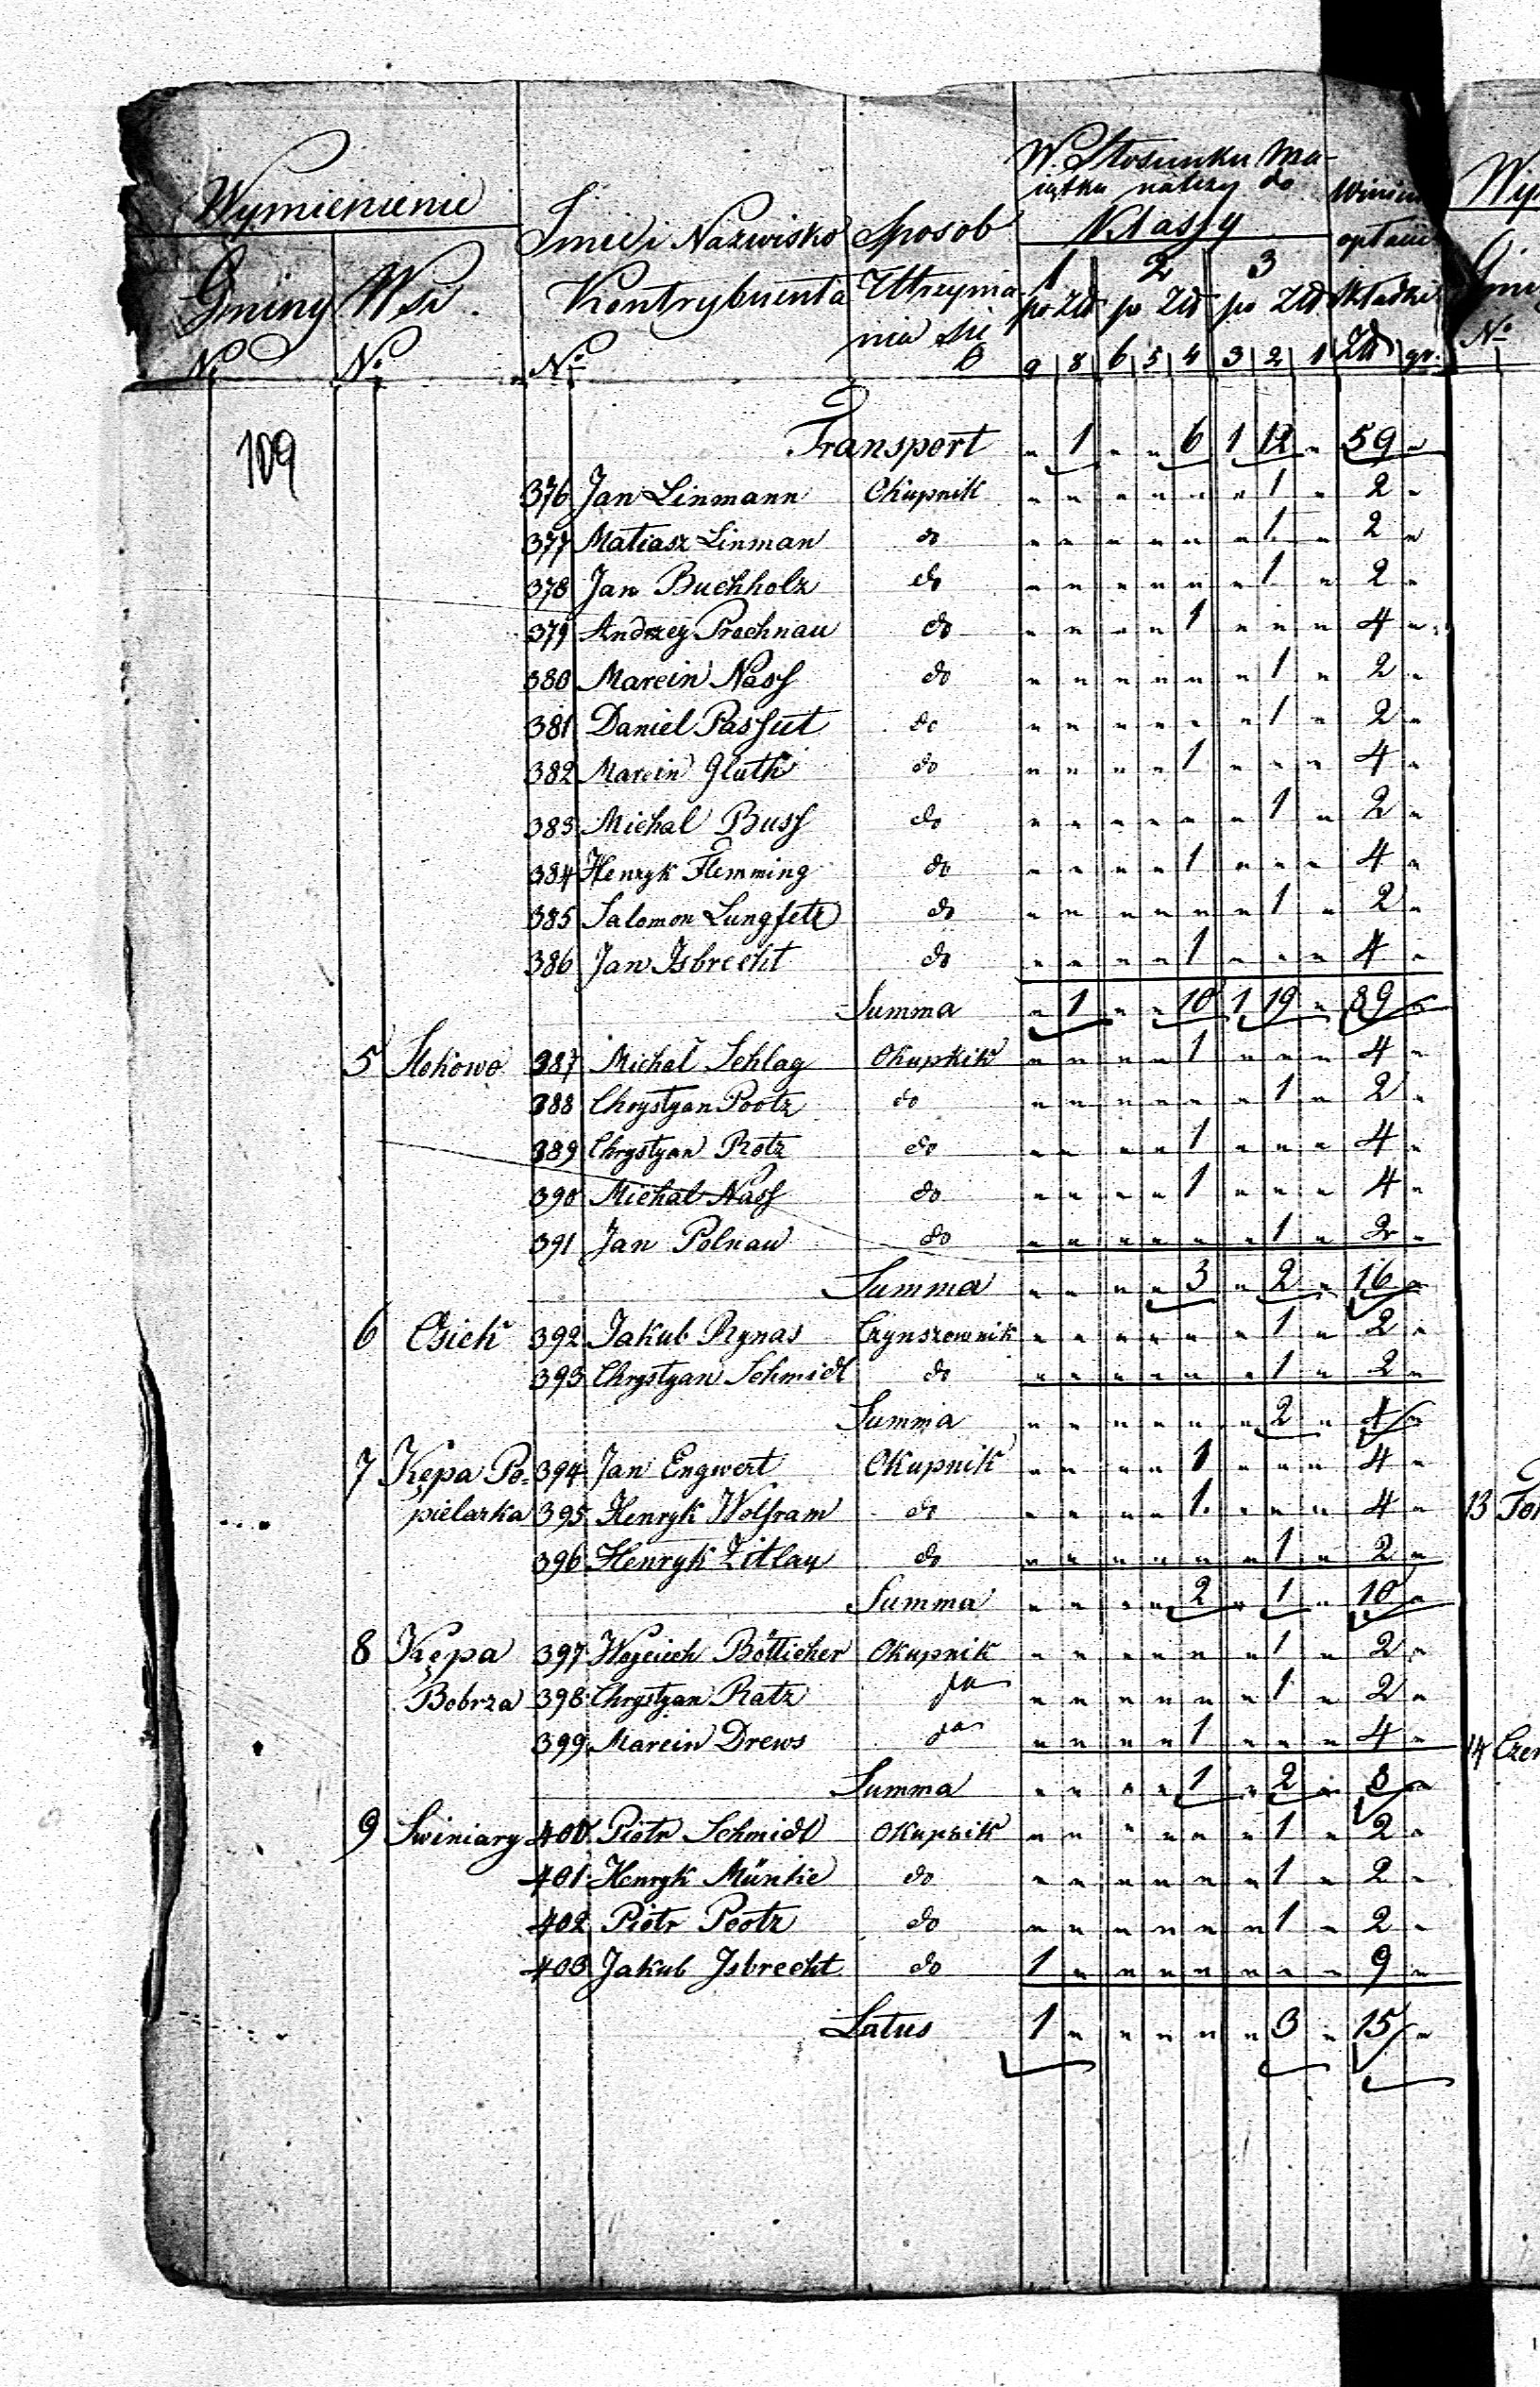 W. Stosunku Ma-
iątku należy do
Wymienienie
Imie i Nazwisko Sposob Klassy Winien
opłacić
Gminy Wsi Kontrybuenta Utrzyma- 1 2 3
nia się po Zł po Zł po Zł Składki
No No No 9 8 6 5 4 3 2 1 Zł gr.
109
Transport " 1 " " 6 1 12 " 59 "
376 Jan Linmann Okupnik " " " " " " 1 " 2 "
377 Matiasz Linman do " " " " " " 1 " 2 "
378 Jan Buchholz do " " " " " " 1 " 2 "
379 Andrzey Prochnau do " " " " 1 " " " 4 "
380 Marcin Nass do " " " " " " 1 " 2 "
381 Daniel Passut do " " " " " " 1 " 2 "
382 Marcin Gluth do " " " " 1 " " " 4 "
383 Michal Buss do " " " " " " 1 " 2 "
384 Henryk Flemming do " " " " 1 " " " 4 "
385 Salomon Lungfetz do " " " " " " 1 " 2 "
386 Jan Isbrecht do " " " " 1 " " " 4 "
Summa " 1 " " 10 1 19 " 89 "
5 387 Michał Schlag Okupnik " " " " 1 " " " 4 "
388 Chrystyan Pootz do " " " " " " 1 " 2 "
389 Chrystyan Rotz do " " " " 1 " " " 4 "
390 Michal Nass do " " " " 1 " " " 4 "
391 Jan Polnau do " " " " " " 1 " 2 "
Summa " " " " 3 " 2 " 16 "
6 Osiek 392 Jakub Rynas Czynszownik " " " " " " 1 " 2 "
393 Chrystyan Schmidt do " " " " " " 1 " 2 "
Summa " " " " " " 2 " 4 "
7 Kępa Po- 394 Jan Engwert Okupnik " " " " 1 " " " 4 "
pielarka 395 Henryk Wolfram do " " " " 1 " " " 4 "
396 Henryk Zitlau do " " " " " " 1 " 2 "
Summa " " " " 2 " 1 " 10 "
8 Kępa 397 Woyciech Bötticher Okupnik " " " " " " 1 " 2 "
Bobrza 398 Chrystyan Ratz " " " " " " 1 " 2 "
399 Marcin Drews " " " " 1 " " " 4 "
Summa " " " " 1 " 2 " 8 "
9 Swiniary 400 Piotr Schmidt Okupnik " " " " " " 1 " 2 "
401 Henryk Müntie do " " " " " " 1 " 2 "
402 Piotr Pootz do " " " " " " 1 " 2 "
403 Jakub Isbrecht do 1 " " " " " " " 9 "
Latus 1 " " " " " 3 " 15 "
No
13
14